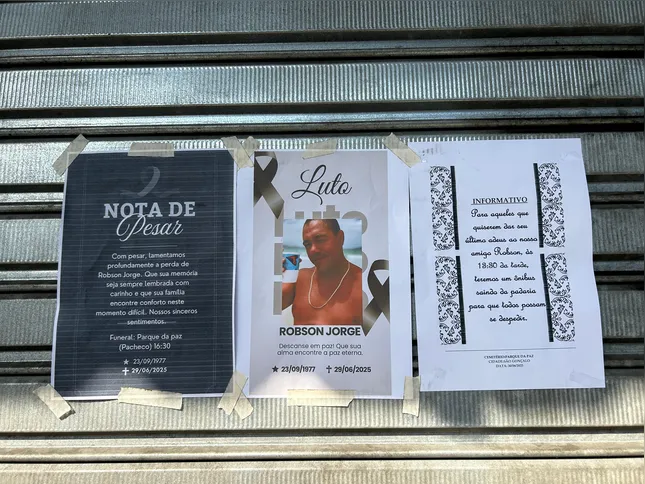 NOTA DE
Pesar
Com pesar, lamentamos
profundamente a perda de
Robson Jorge. Que sua memória
seja sempre lembrada com
carinho e que sua família
encontre conforto neste
momento difícil. Nossos sinceros
sentimentos.
Funeral: Parque da paz
(Pacheco) 16:30
★ 23/09/1977
✝ 29/06/2025
Luto
Luto
ROBSON JORGE
Descanse em paz! Que sua
alma encontre a paz eterna.
★ 23/09/1977 ✝ 29/06/2025
INFORMATIVO
Para aqueles que
quiserem dar seu
última adeus ao nosso
amigo Robson, às
13:30 da tarde,
teremos um ônibus
saindo da padaria
para que todos possam
se despedir.
CEMITÉRIO PARQUE DA PAZ
CIDADE: SÃO GONÇALO
DATA: 30/06/2025